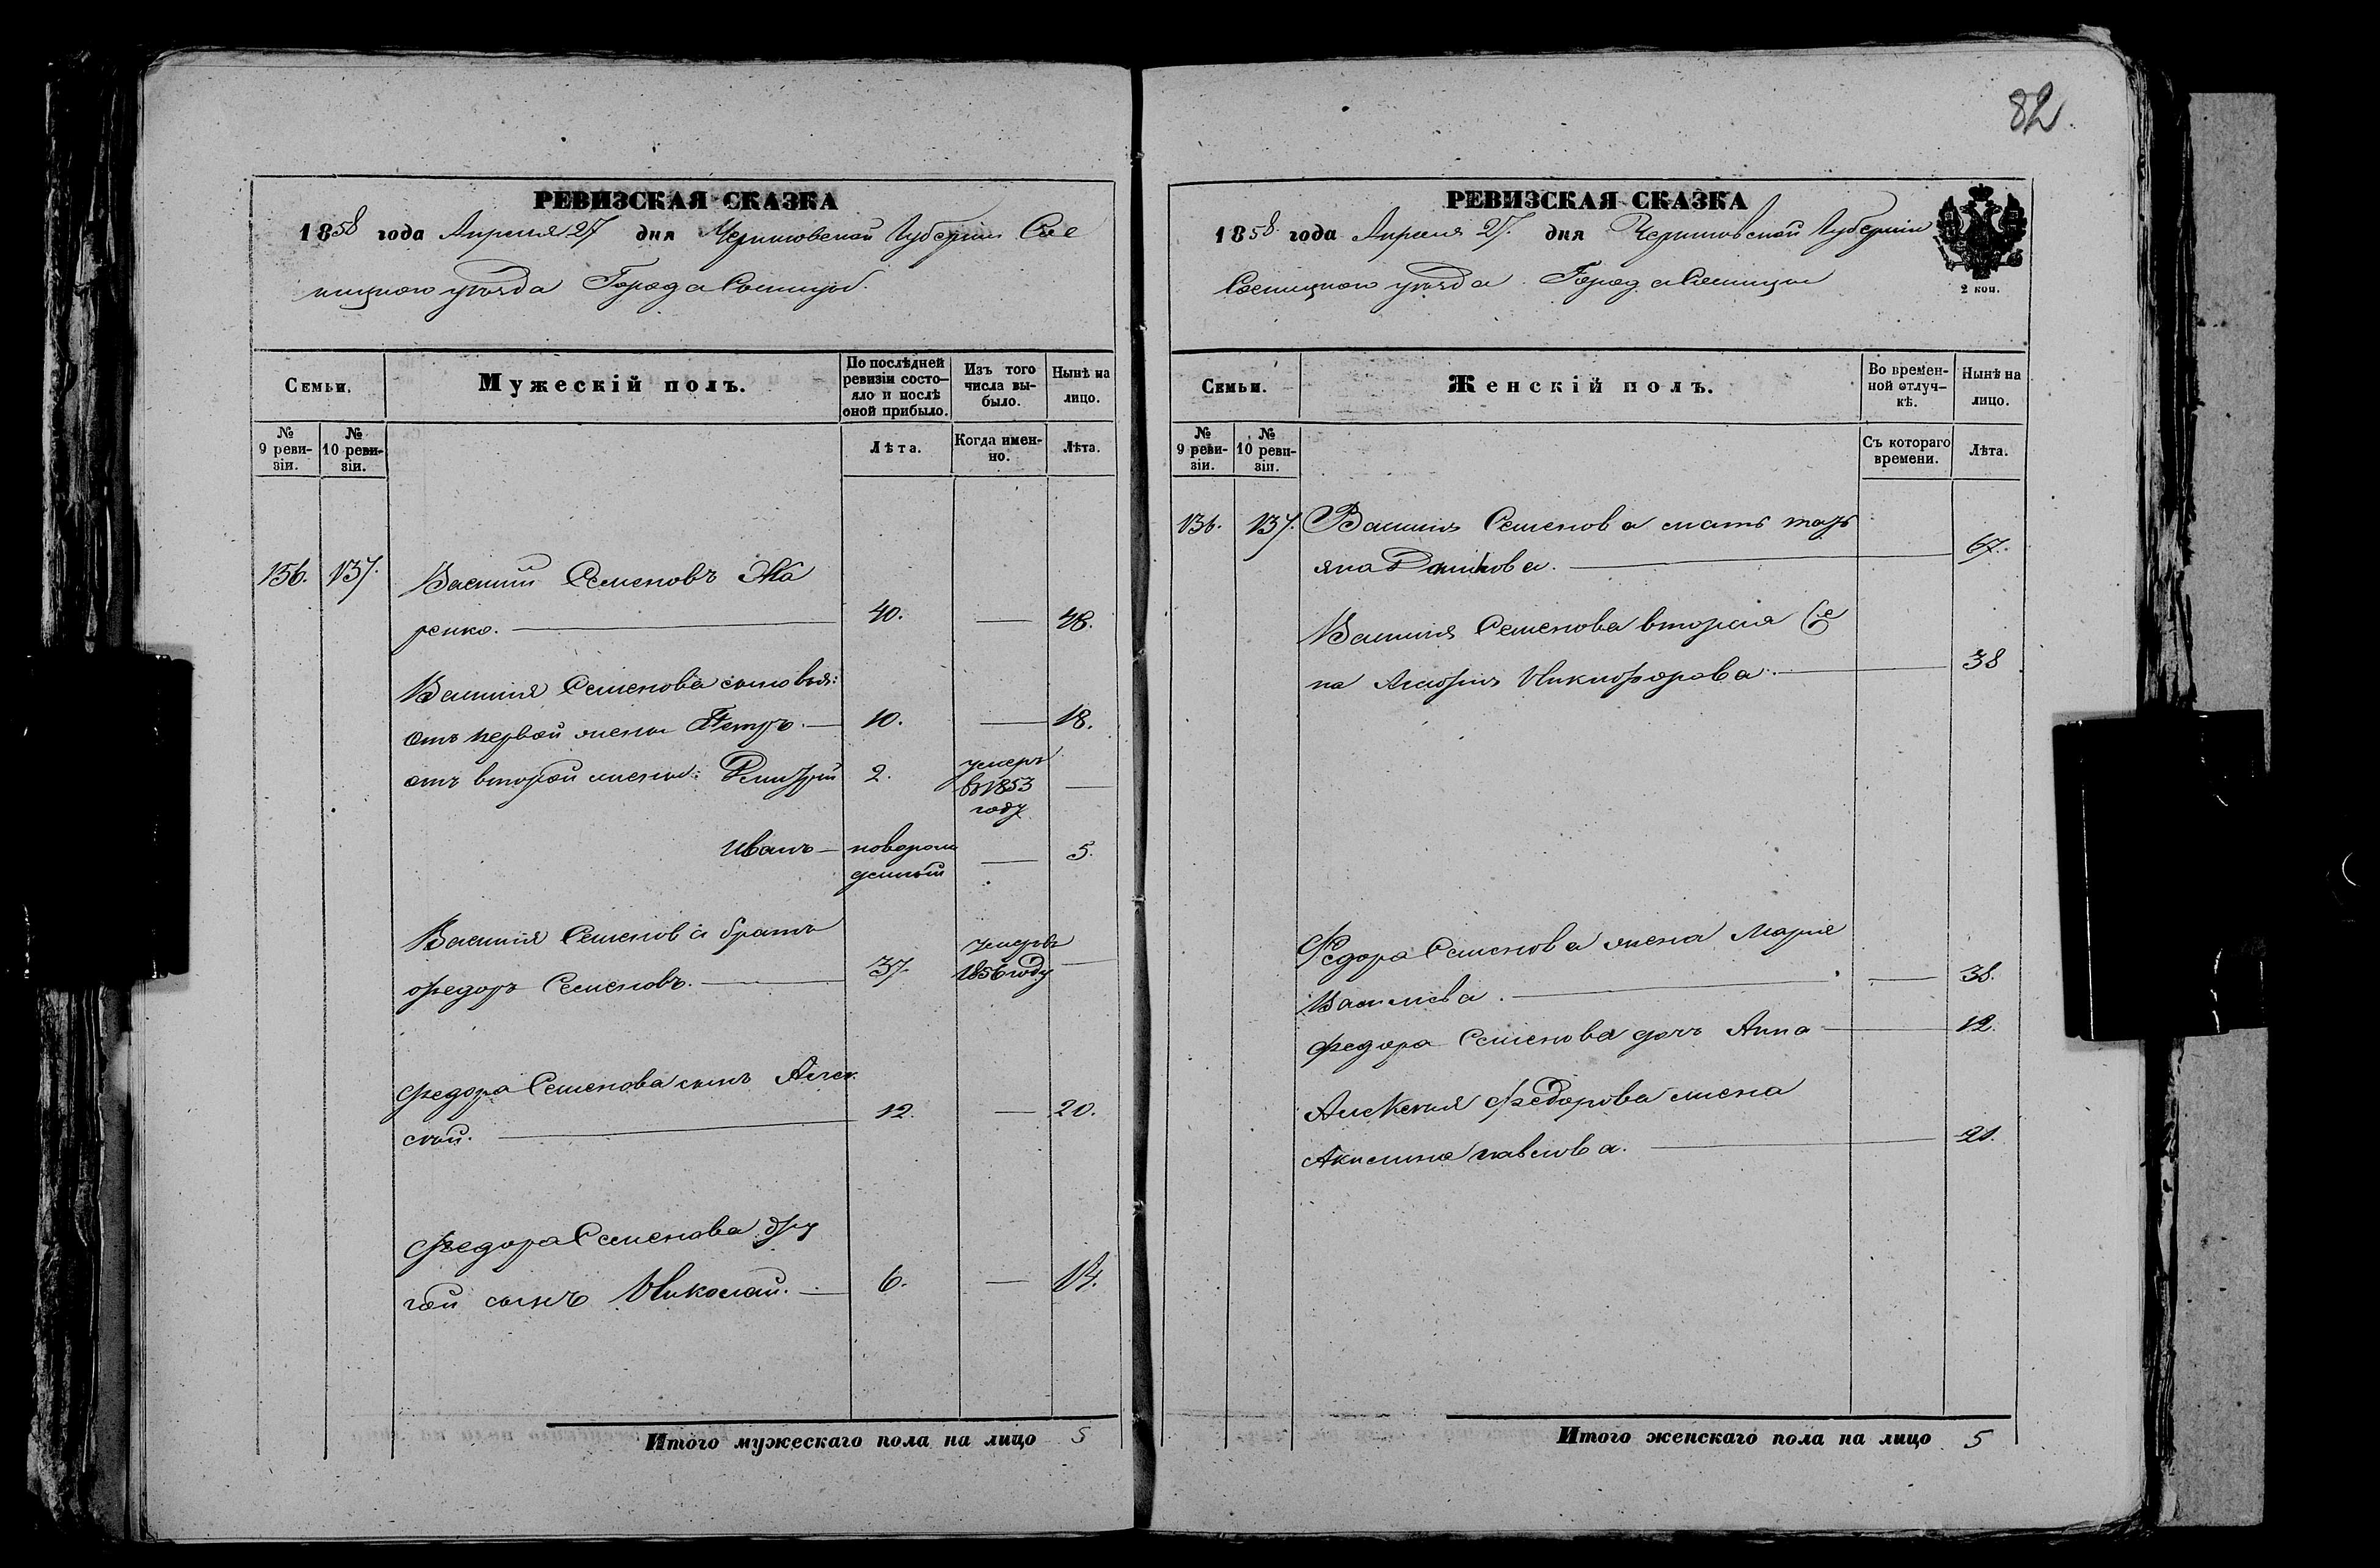 82.
РЕВИЗСКАЯ СКАЗКА
1858 года Апреля 27 дня Черниговской Губернии Сос
ницкого уѣзда Города Сосницы.
Семьи.
Мужескій полъ.
По послѣдней ревизіи состояло и послѣ оной прибыло.
Изъ того числа выбыло.
Нынѣ на лицо.
№ 9 ревизіи.
№ 10 ревизіи.
Лѣта.
Когда именно.
Лѣта.
136. 137. Василій Семеновъ Жа
ренко. — 40. — 48.
Василія Семенова сыновья:
отъ первой жены Петръ. — 10. — 18.
отъ второй жены: Дмитрій 2. умеръ
въ 1853 —
году
Иванъ — новорож — 5.
денный
Василія Семенова братъ умеръ въ
Федоръ Семеновъ. — 37. 1856 году —
Федора Семенова сынъ Алек
сѣй. — 12. — 20.
Федора Семенова дру
гой сынъ Николай. — 6. — 14.
Итого мужескаго пола на лицо 5
РЕВИЗСКАЯ СКАЗКА
1858. года Апреля 27. дня Черниговской Губерніи
Сосницкого уѣзда Города Сосницы
2 коп.
Семьи.
Женскій полъ.
Во временной отлучкѣ.
Нынѣ на лицо.
№ 9 ревизіи.
№ 10 ревизіи.
Съ котораго времени.
Лѣта.
136. 137. Василія Семенова мать
— 67.
Василія Семенова вторая Же
на Никифорова. — 38
Федора Семенова жена Марія
Васильева. — 38.
Федора Семенова дочь Анна — 12.
Алексѣя Федорова жена
Акилина павлова. — 21.
Итого женскаго пола на лицо 5